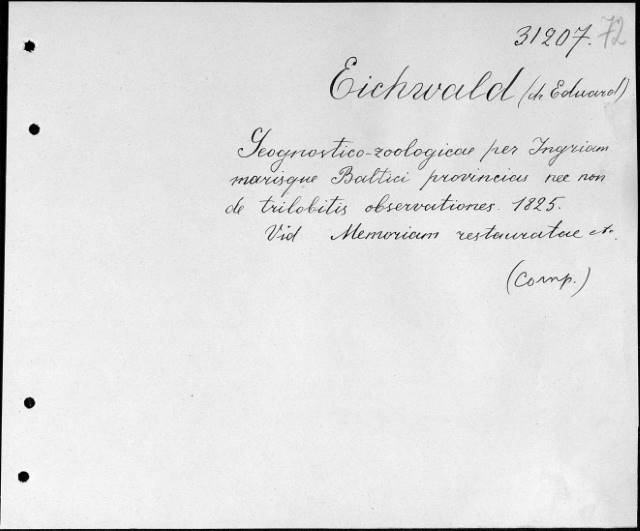 31207. 72
Eichwald (dr Eduard)
Geognostico-zoologicae per Ingriam
marisque Baltici provincias nec non
de trilobitis observationes. 1825.
Vid Memoriam restauratae etc.
(Comp.)